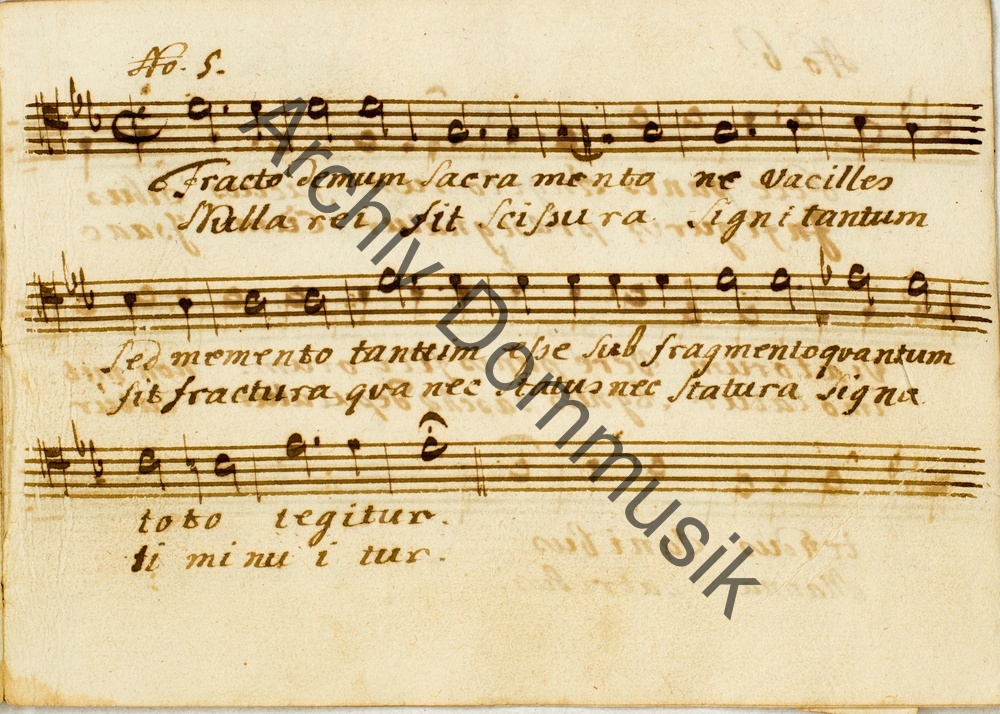 No. 5.
Fracto demum sacra mento ne vacilles
Nulla rei fit scißura signi tantum
sed memento tantum eße sub fragmento quantum
fit fractura qva nec status nec statura signa
toto tegitur.
ti minu i tur.
Archiv Dommusik
No 6